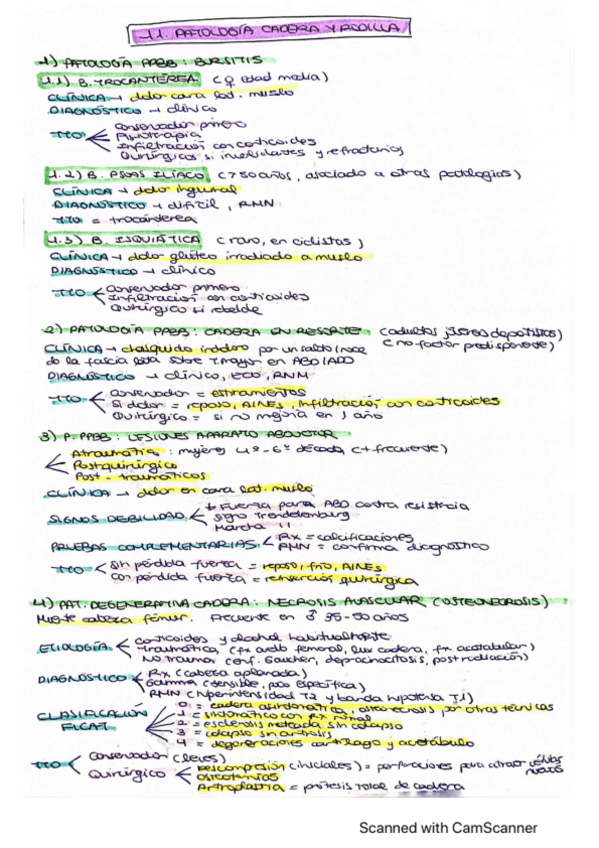 11. PATOLOGÍA CADERA Y RODILLA
1) PATOLOGÍA PPBB: BURSITIS
1.1) B. TROCANTÉREA (♀ edad media)
CLÍNICA → dolor cara lat. muslo
DIAGNÓSTICO → clínico
TTO
Conservador primero
Fisioterapia
Infiltración con corticoides
Quirúrgicos si invalidantes y refractarios
1.2) B. PSOAS ILÍACO (>50 años, asociado a otras patologías)
CLÍNICA → dolor inguinal
DIAGNÓSTICO → difícil, RMN
TTO = trocantérea
1.3) B. ISQUIÁTICA (raro, en ciclistas)
CLÍNICA → dolor glúteo irradiado a muslo
DIAGNÓSTICO → clínico
TTO
Conservador primero
Infiltración con corticoides
Quirúrgico si rebelde
2) PATOLOGÍA PPBB: CADERA EN RESORTE (adultas jóvenes deportistas)
(no factor predisponente)
CLÍNICA → chasquido indoloro por un salto/roce
de la fascia lata sobre T. mayor en ABD/ADD
DIAGNÓSTICO → clínico, ECO, RNM
TTO
Conservador = estiramientos
Si dolor = reposo, AINES, infiltración con corticoides
Quirúrgico = si no mejoría en 1 año
3) P. PPBB: LESIONES APARATO ABDUCTOR
Atraumática: mujeres 4ª-6ª década (+ frecuente)
Postquirúrgico
Post-traumáticos
CLÍNICA → dolor en cara lat. muslo
SIGNOS DEBILIDAD
↓ Fuerza para ABD contra resistencia
Signo Trendelemburg
Marcha "
PRUEBAS COMPLEMENTARIAS
Rx = calcificaciones
RMN = confirma diagnóstico
TTO
Sin pérdida fuerza = reposo, frío, AINES
Con pérdida fuerza = reinserción quirúrgica
4) PAT. DEGENERATIVA CADERA: NECROSIS AVASCULAR (OSTEONECROSIS)
Muerte cabeza fémur. Frecuente en ♂ 35-50 años
ETIOLOGÍA
Corticoides y alcohol habitualmente
Traumática (fx cuello femoral, lux cadera, fx acetabular)
No trauma (enf. Gaucher, drepanocitosis, postradiación)
DIAGNÓSTICO
Rx (cabeza aplanada)
Gamma (sensible, poco específica)
RMN (hiperintensidad T2 y banda hipotensa T1)
CLASIFICACIÓN
FICAT
0 = cadera asintomática, osteonecrosis por otras técnicas
1 = sintomático con Rx normal
2 = esclerosis moteada sin colapso
3 = colapso sin artrosis
4 = degeneraciones cartílago y acetábulo
TTO
Conservador (leves)
Quirúrgico
Descompresión (iniciales) = perforaciones para atraer células nuevas
Osteotomías
Artroplastia = prótesis total de cadera
Scanned with CamScanner